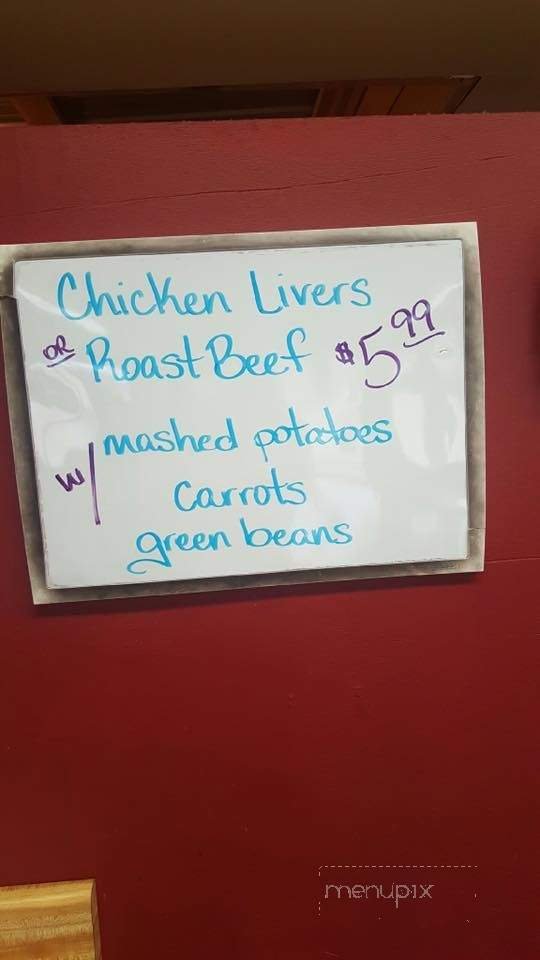 Chicken Livers
OR Roast Beef $5.99
w/ mashed potatoes
carrots
green beans
menupix